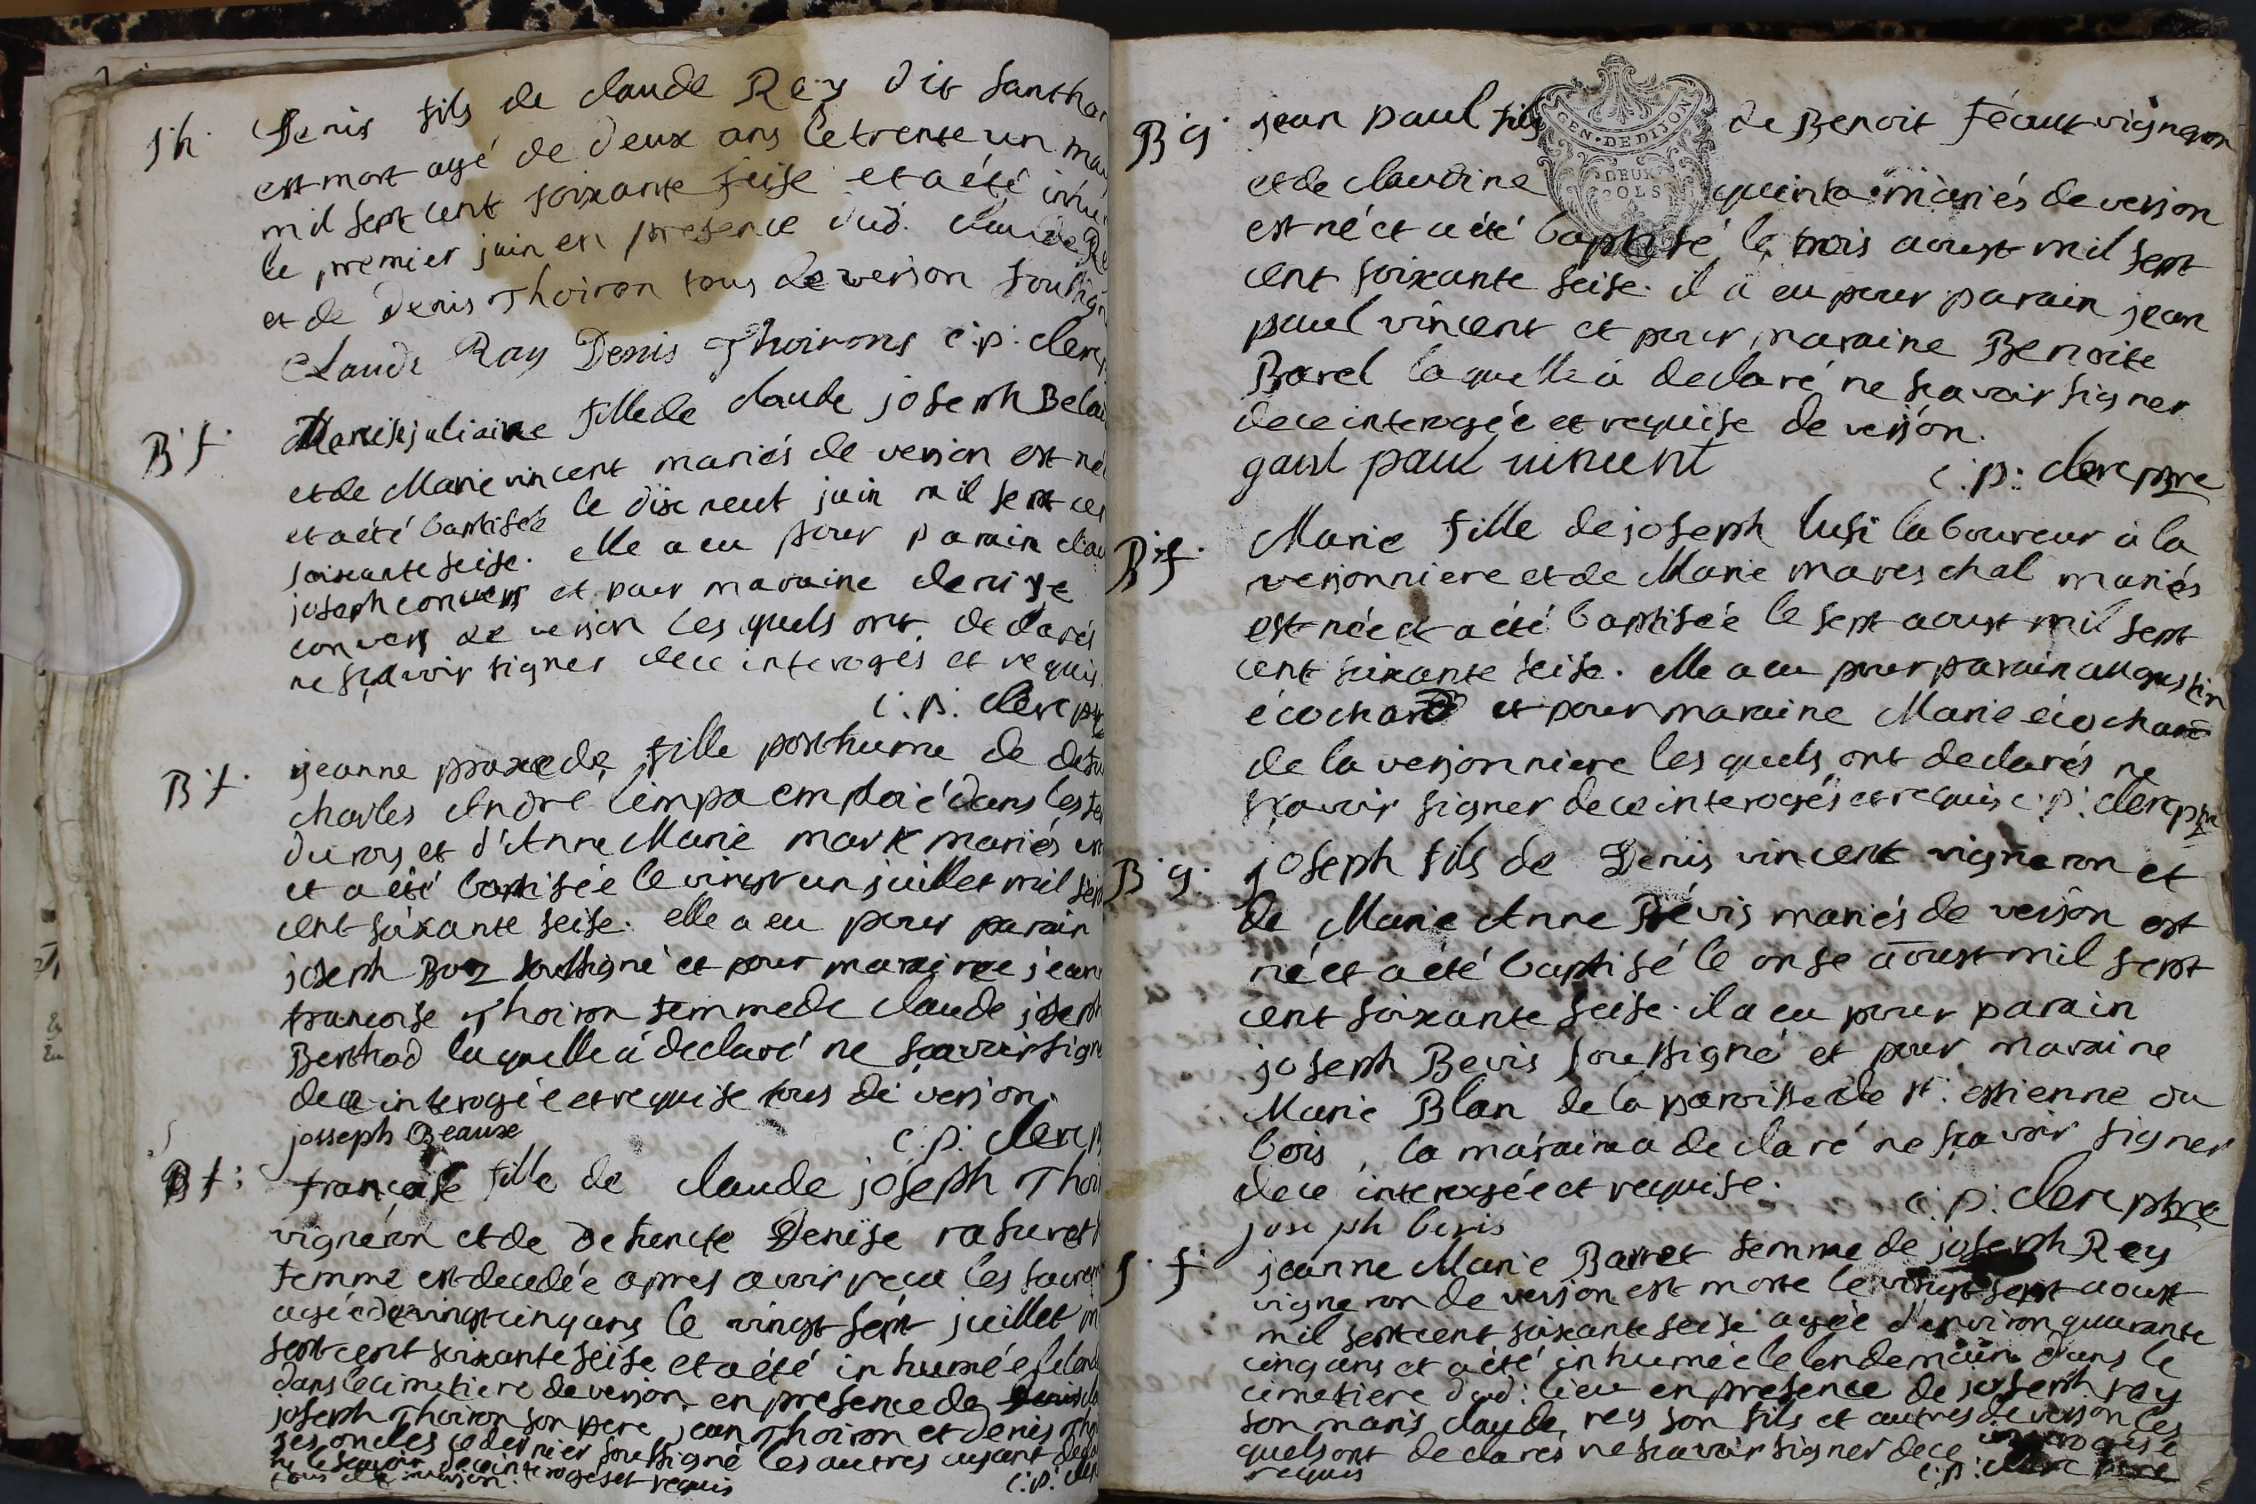 Sh. Denis fils de claude Rey dit Santhon
est mort agé de deux ans le trente un may
mil sept cent soixante seise et a été inhu
le premier juin en presence dud. claude Re
et de Denis Thoiron tous de verjon soussign
Claude Ray Denis Thoirons C: p: clerc
B f. Marie juliaine fille de claude joseph Belau
et de Marie vincent mariés de verjon est né
et a été baptisée le dix neuf juin mil sept cen
soixante seise. elle a eu pour parain clau
joseph convers et pour maraine denise
convers de verjon les quels ont declarés
ne sçavoir signer de ce interogés et requis.
C. p. clerc ptre
B f. jeanne praxede fille posthume de defu
charles André limpa emploié dans les fe
du roy et d'Anne Marie mark mariés
et a été baptisée le vingt un juillet mil sept
cent soixante seise. elle a eu pour parain
joseph Boz soussigné et pour maraine jeann
françoise Thoiron femme de claude joseph
Berthod laquelle a declaré ne sçavoir signe
de ce interogée et requise tous de verjon.
josseph Beaux C. p. clerc p
B f: françoise fille de claude joseph Thoi
vigneron et de defuncte Denise rasuret
femme est decedée apres avoir reçu les sacre
agée de vingt cinq ans le vingt sept juillet m
sept cent soixante seise et a été inhumée le lend
dans le cimetiere de verjon en presence de
joseph Thoiron son pere jean Thoiron et denis Tho
ses oncles ce dernier soussigné les autres ayant decla
ne le sçavoir de ce interogés et requis
tous de verjon. C. p. cler
B g. jean paul fils de Benoit Féaut vigneron
GEN. DE DIJON
DEUX SOLS
et de claudine quinta mariés de verjon
est né et a été baptisé le trois aoust mil sept
cent soixante seise. il a eu pour parain jean
paul vincent et pour maraine Benoite
Barel laquelle a declaré ne sçavoir signer
de ce interogée et requise de verjon.
gaul paul uincent C. p: clerc ptre
B f. Marie fille de joseph lusi laboureur à la
verjonniere et de Marie mareschal mariés
est née et a été baptisée le sept aoust mil sept
cent soixante seise. elle a eu pour parain augustin
écochard et pour maraine Marie écochard
de la verjonniere les quels ont declarés ne
sçavoir signer de ce interogés et requis C: p: clerc ptre
B g. joseph fils de Denis vincent vigneron et
de Marie Anne Bévis mariés de verjon est
né et a été baptisé le onse aoust mil sept
cent soixante seise. il a eu pour parain
joseph Bevis soussigné et pour maraine
Marie Blan de la paroisse de st: estienne du
bois, la maraine a declaré ne sçavoir signer
de ce interogée et requise. C: p: clerc ptre
jose ph bevis
S. f. jeanne Marie Barret femme de joseph Rey
vigneron de verjon est morte le vingt sept aoust
mil sept cent soixante seise agée d'environ quarante
cinq ans et a été inhumée le lendemain dans le
cimetiere dud: lieu en presence de joseph ray
son maris claude rey son fils et autres de verjon les
quels ont declarés ne sçavoir signer de ce interogés et
requis C: p: clerc ptre